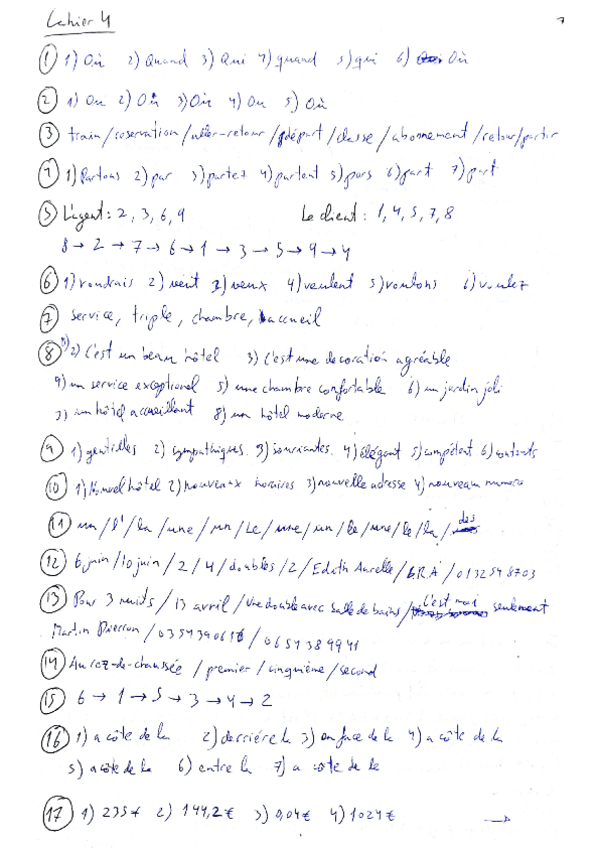 Cahier 4
1
① 1) Où 2) Quand 3) Qui 4) quand 5) qui 6) Où
② 1) Ou 2) Où 3) Où 4) Ou 5) Où
③ train / reservation / aller-retour / départ / classe / abonnement / retour / partir
1) Partons 2) par 3) partez 4) partent 5) pars 6) part 7) part
⑤ L'agent : 2, 3, 6, 9 Le client : 1, 4, 5, 7, 8
8 → 2 → 7 → 6 → 1 → 3 → 5 → 9 → 4
⑥ 1) voudrais 2) veut 3) veux 4) veulent 5) voulons 6) voulez
⑦ service, triple, chambre, accueil
⑧ 2) C'est un beau hôtel 3) C'est une decoration agréable
4) un service exceptionel 5) une chambre confortable 6) un jardin joli
7) un hôtel accueillant 8) un hôtel moderne
⑨ 1) gentilles 2) sympathiques 3) souriantes 4) élégant 5) compétent 6) contents
⑩ 1) Nouvel hôtel 2) nouveaux horaires 3) nouvelle adresse 4) nouveau numero
⑪ un / l' / la / une / un / Le / une / un / le / une / le / la / des
⑫ 6 juin / 10 juin / 2 / 4 / doubles / 2 / Edith Aurelle / G.R.A / 0132548703
⑬ Pour 3 nuits / 13 avril / Une double avec salle de bains / C'est moi seulement
Martin Pierron / / 0654389941
⑭ Au rez-de-chaussée / premier / cinquième / second
⑮ 6 → 1 → 5 → 3 → 4 → 2
⑯ 1) a côte de la 2) derriére la 3) en face de la 4) a côte de la
5) a côte de la 6) entre la 7) a côte de le
⑰ 1) 235 € 2) 144,2 € 3) 0,04 € 4) 1024 € →